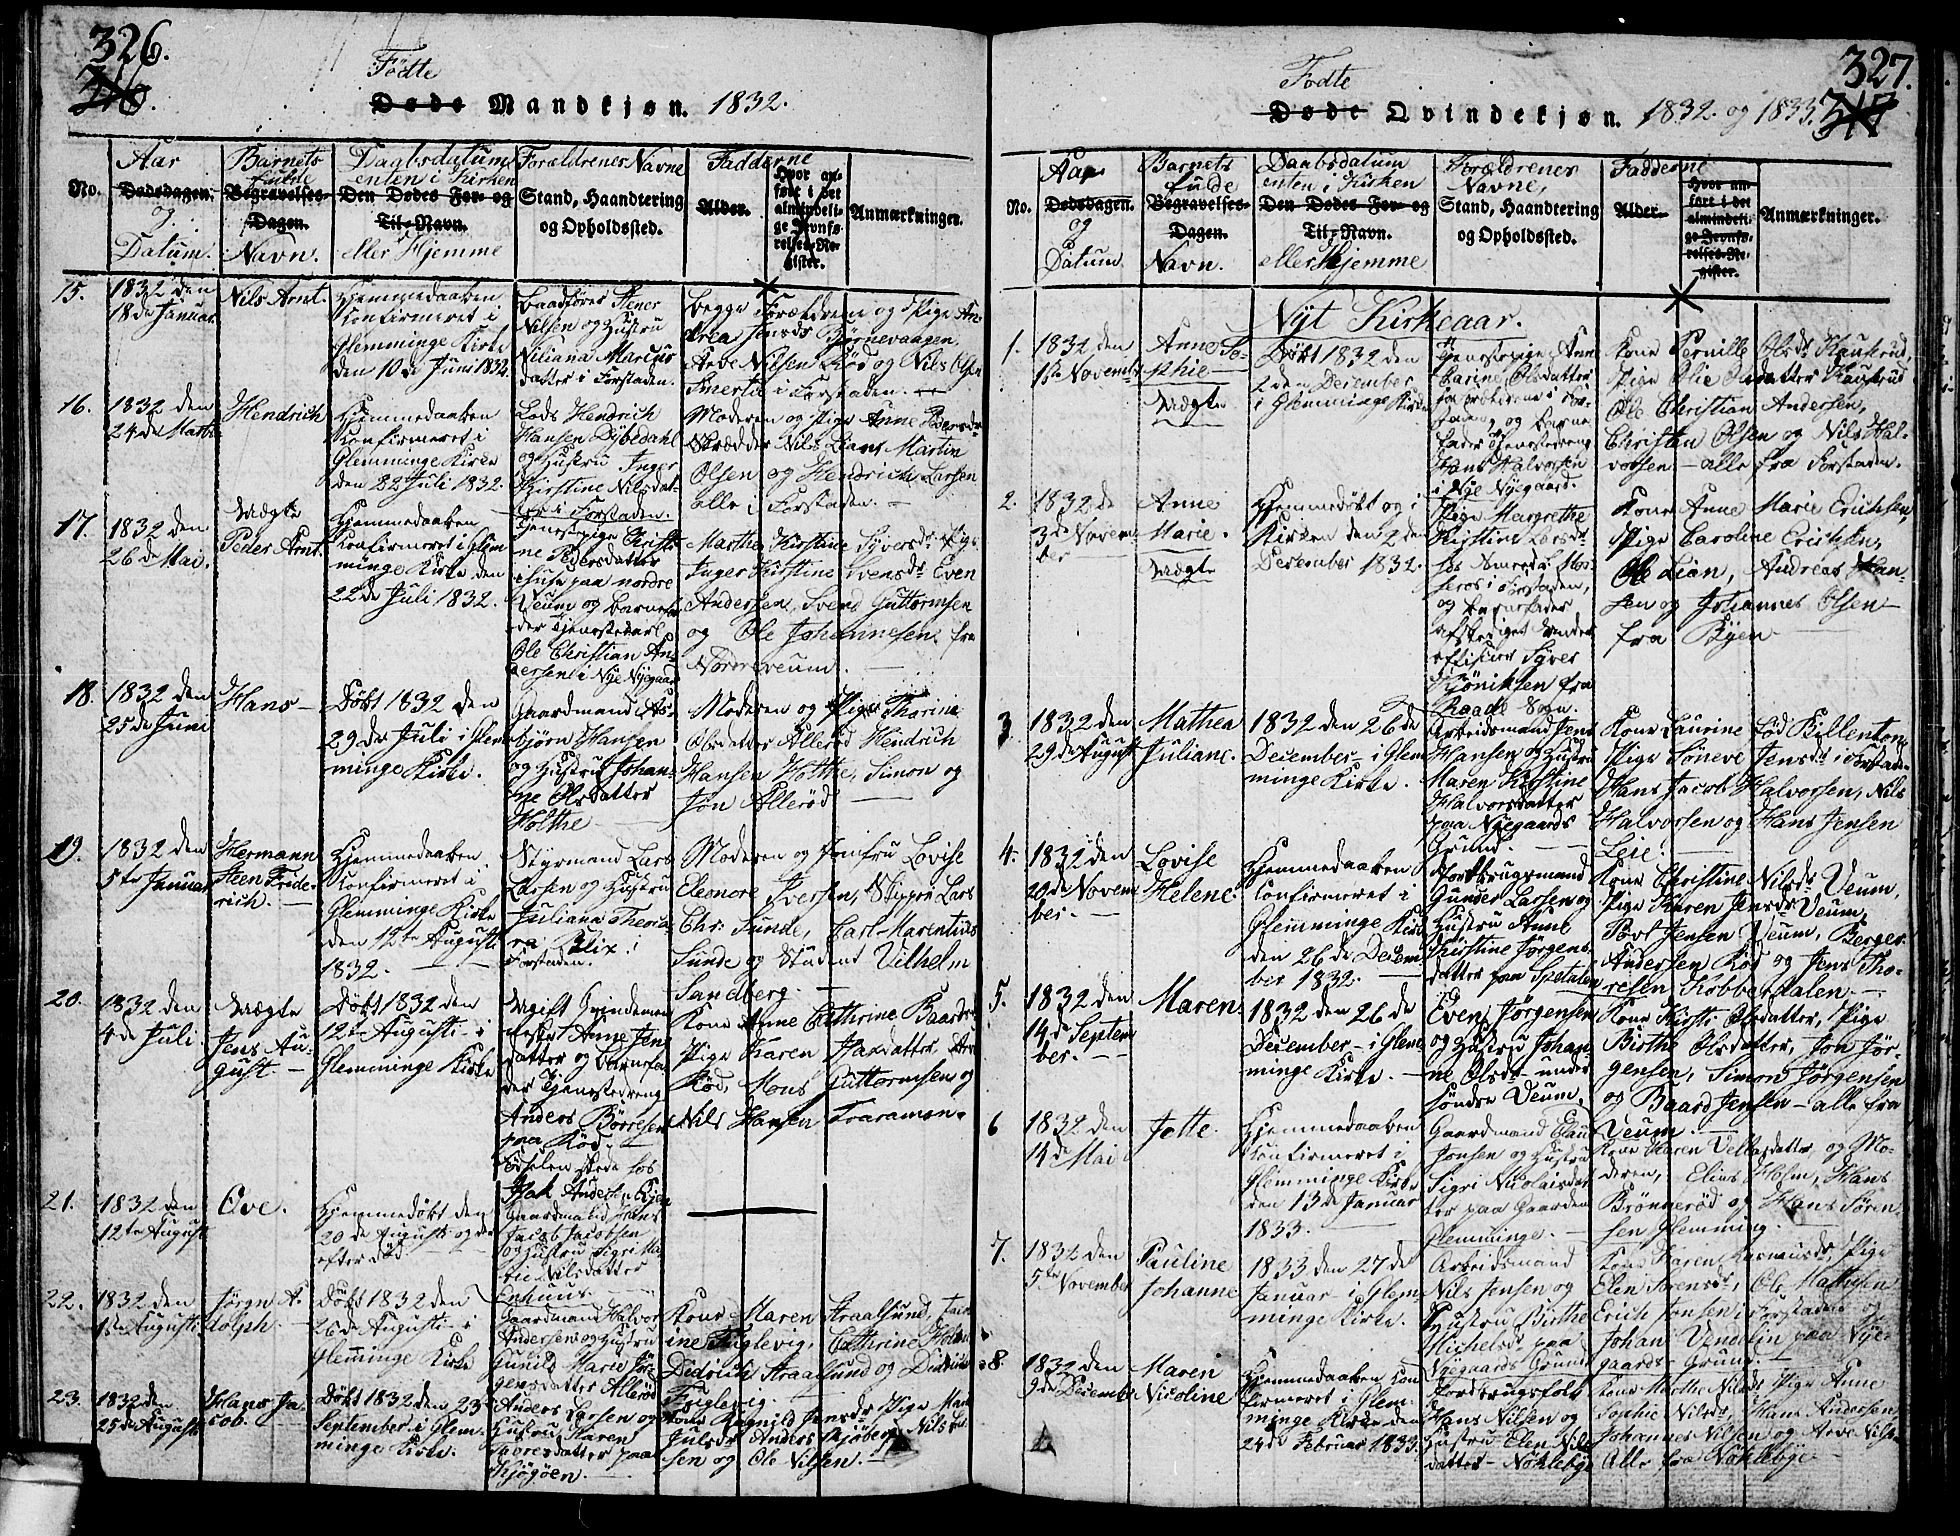 326.
316.
Födte
Døde Mandkjøn. 1832.
No.
Aar
Dødsdagen.
og
Datum.
Barnets
fulde
Begravelses-
Dagen.
Navn.
Daabsdatum
enten i Kirken
Den Dødes For- og
Til-Navn.
eller Hjemme
Forældrenes Navne
Stand, Haandtering
og Opholdssted.
Fadderne
Alder.
Hvor an-
ført i det
almindeli-
ge Jevnfø-
relses-Re-
gister.
Anmærkninger.
15.
1832 den
18de Januar
Nils Arnt.
Hjemmedaaben
Konfirmeret i
Glemminge Kirke
den 10de Juni 1832.
Baadfører Stener
Nilsen og Hustru
Niliana Marcus
datter i Forstaden.
Begge Forældrene og Pige An-
drea Jensdr Børnevaagen.
Arve Nilsen Kød og Nils Olsen
Smertu i Forstaden.
16.
1832 den
24de Marts
Hendrich
Hjemmedaaben
Konfirmeret i
Glemminge Kirke
den 22 Juli 1832.
Lods Hendrich
Hansen Dybedahl
og Hustru Inger
Kirstine Nilsdat-
ter i Forstaden.
Moderen og Pige Anne Pedersdr
Skrædder Nils Lians Martin
Olsen og Hendrich Larsen
alle i Forstaden.
17.
1832 den
26de Mai.
Uægte
Peder Arnt.
Hjemmedaaben
Konfirmeret i Glem
minge Kirke den
22de Juli 1832.
Tjenestepige Christi-
ne Pedersdatter
i huse paa nordre
Veum og Barnefa-
der Tjenestekarl
Ole Christian An-
dersen i Nye Nygaard
Marthe Kirstine Syversdr Pige
Inger Kirstine Svensdr Even
Andersen, Svend Guttormsen
og Ole Johannesen fra
Nordre Veum.
18.
1832 den
25de Juni
Hans
Døbt 1832 den
29de Juli i Glem
minge Kirke.
Gaardmand As-
bjørn Hansen
og Hustru Johan-
ne Olsdatter
Holthe
Moderen og Pige Thorine
Olsdatter Allerød Hendrich
Hansen Holthe, Simon og
Jon Allerød
19.
1832 den
5te Januar
Hermann
Steen Fride-
rich.
Hjemmedaaben
Konfirmeret i
Glemminge Kirke
den 12te Augusti
1832.
Styrmand Lars
Larsen og Hustru
Juliana Theodo
ra Blix i
Forstaden.
Moderen og Jomfru Lovise
Eleonore Iversen, Skipper Lars
Chr: Sunde, Carl Marentius
Sunde og Student Vilhelm
Sandberg.
20.
1832 den
4de Juli
Uægte
Jens Au-
gust.
Døbt 1832 den
12te Augusti i
Glemminge Kirke
Ugift Qvindemen
neske Anne Jens
datter og Barnefa
der Tjenestedreng
Anders Børresen
paa Kød.
Fødselen skede hos
Isak Anders Kjær
Kone Anne Cathrine Baardsdr
Pige Karen Isaxdatter, Arve
Kød, Mons Guttormsen og
Nils Hansen Traramen
21.
1832 den
12te August
Ove.
Hjemmedøbt den
20de Augusti og der
efter død
Gaardmand Hans
Jacob Jacobsen
og Hustru Sigri Ma
rie Nilsdatter
Enhuus
22.
1832 den
1ste Augusti
Jørgn A-
dolph.
Døbt 1832 den
26de Augusti i
Glemminge Kirke
Gaardmand Halvor
Andersen og Hustru
Gunild Marie Jør-
gensdatter Allerød
Kone Maren Straalsund,
ine Fuglevig, Cathrine Holm
Didrich Straalsund og Didrich
Fuglevig.
23.
1832 den
25de August
Hans Ja
cob.
Døbt 1832 den 23
September i Glem-
minge Kirke.
Anders Larsen og
Hustru Karen
Thoresdatter paa
Kjøgøen.
Kone Ragnild Jensdr Pige Mari
Julsdr Anders Skjøberg Nils
sen og Ole Nilsen.
327.
317
Födte
Døde Qvindekjøn. 1832. og 1833.
No.
Aar
Dødsdagen.
og
Datum.
Barnets
fulde
Begravelses-
Dagen.
Navn.
Daabsdatum
enten i Kirken
Den Dødes For- og
Til-Navn.
eller Hjemme
Forældrenes
Navne,
Stand, Haandtering
og Opholdssted.
Fadderne
Alder.
Hvor an-
ført i det
almindeli-
ge Jevnfø-
relses-Re-
gister.
Anmærkninger.
Nyt Kirkeaar.
1.
1832 den
1ste Novemb
Anne So-
phie
Uægte
Døbt 1832 den
2den December
i Glemminge Kirke
Tjenestepige Anne
Carine Olsdatter
paa i For-
staden, og Barne-
fader Tjenestedreng
Hans Halvorsen
i Nye Nygaard.
Kone Pernille Olsdr Haukrud,
Pige Olie Olsdatter Haukrud
Ole Christian Andersen,
Christian Olsen og Nils Hal-
vorsen – alle fra Forstaden.
2.
1832 de
3de Novem
ber
Anne
Marie.
Uægte
Hjemmedøbt og i
Kirken den 2den
December 1832.
Pige Margrethe
Kirstine Larsdr
hos Smeed L. Mos-
seros i Forstaden,
og Barnefader
afskediget Under
officier Syver
Kjøniksen fra
Raade Sogn.
Kone Anne Marie Erichsen,
Pige Caroline Erichsen,
Ole Lian, Andreas Han-
sen og Johannes Olsen
fra Byen
3
1832 den
29de August
Mathea
Juliane.
1832 den 26de
December i Glem
minge Kirke.
Arbeidsmand Jens
Hansen og Hustru
Maren Kirstine
Halvorsdatter
paa Nygaards
Grund.
Kone Laurine fød Killenton,
Pige Søneve Jensdr i Forstaden
Hans Jacob Halvorsen, Nils
Halvorsen og Hans Jensen
Leie.
4.
1832 den
20de Novem
ber.
Lovise
Helene.
Hjemmedaaben
Konfirmeret i
Glemminge Kirke
den 26de Decem
ber 1832.
Jordbrugsmand
Gunder Larsen og
Hustru Anne
Kirstine Jørgens-
datter paa Spetalen
Kone Christine Nilsdr Veum,
Pige Karen Jensdr Veum,
Port Jensen Veum, Berger
Andersen Kød og Jens Tho-
resen Kobberdalen.
5.
1832 den
14de Septem
ber.
Maren
1832 den 26de
December i Glem-
minge Kirke.
Even Jørgensen
og Hustru Johan-
ne Olsdr under
søndre Veum.
Kone Kirsti Olsdatter, Pige
Birthe Olsdatter, Jon Jør-
gensen, Simon Jørgensen
og Baard Jensen – alle fra
Veum.
6
1832 den
14de Mai
Jotte.
Hjemmedaaben
Konfirmeret i
Glemminge Kirke
den 13de Januar
1833.
Gaardmand Claus
Jonsen og Hustru
Sigri Nicolaisdat
ter paa Gaarden
Glemminge.
Kone Karen Veltasdatter, og Mo-
deren, Elias Holm, Hans
Brønnerød og Hans Søren-
sen Glemming.
7.
1832 den
5te November
Pauline
Johanne
1833 den 27de
Januar i Glem-
minge Kirke.
Arbeidsmand
Nils Jensen og
Hustru Birthe
Michelsdr paa
Nygaards Grund
Kone Karen Rasmusdr, Pige
Elen Sørensdr, Ole Mathisen
Erich Jensen i Forstaden og
Johan Vendelin paa Nye-
gaards Grund.
8.
1832 den
9de December
Maren
Nicoline
Hjemmedaaben Kon
firmeret i Glem-
minge Kirke den
24de Februar 1833
Jordbrugsfolk
Hans Nilsen og
Hustru Elen Nils
datter Nøklebye
Kone Marthe Nilsdr Pige Anne
Sophie Nilsdr, Hans Andersen
Johannes Nilsen og Arve Nils-
Alle fra Nøklebye.